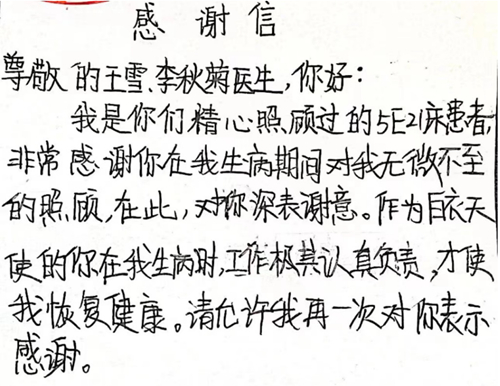 感谢信
尊敬的王雪、李秋菊医生,你好:
我是你们精心照顾过的5E21床患者,
非常感谢你在我生病期间对我无微不至
的照顾,在此,对你深表谢意。作为白衣天
使的你在我生病时,工作极其认真负责,才使
我恢复健康。请允许我再一次对你表示
感谢。